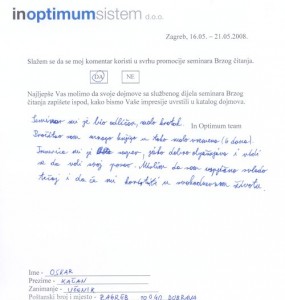 inoptimumsistem d.o.o.
Zagreb, 16.05. – 21.05.2008.
Slažem se da se moj komentar koristi u svrhu promocije seminara Brzog čitanja.
DA NE
Najljepše Vas molimo da svoje dojmove sa službenog dijela seminara Brzog
čitanja zapišete ispod, kako bismo Vaše impresije uvrstili u katalog dojmova.
In Optimum team
Seminar mi je bio odličan, malo kratak.
Pročitao sam mnogo knjiga u tako malo vremena (6 dana).
je jako dobro objašnjeno i vidi
se da voli svoj posao. Mislim da sam uspješno svladao
tečaj i da će mi koristiti u svakodnevnom životu.
Ime - OSKAR
Prezime - KAČAN
Zanimanje - UČENIK
Poštanski broj i mjesto - ZAGREB 10040 DUBRAVA